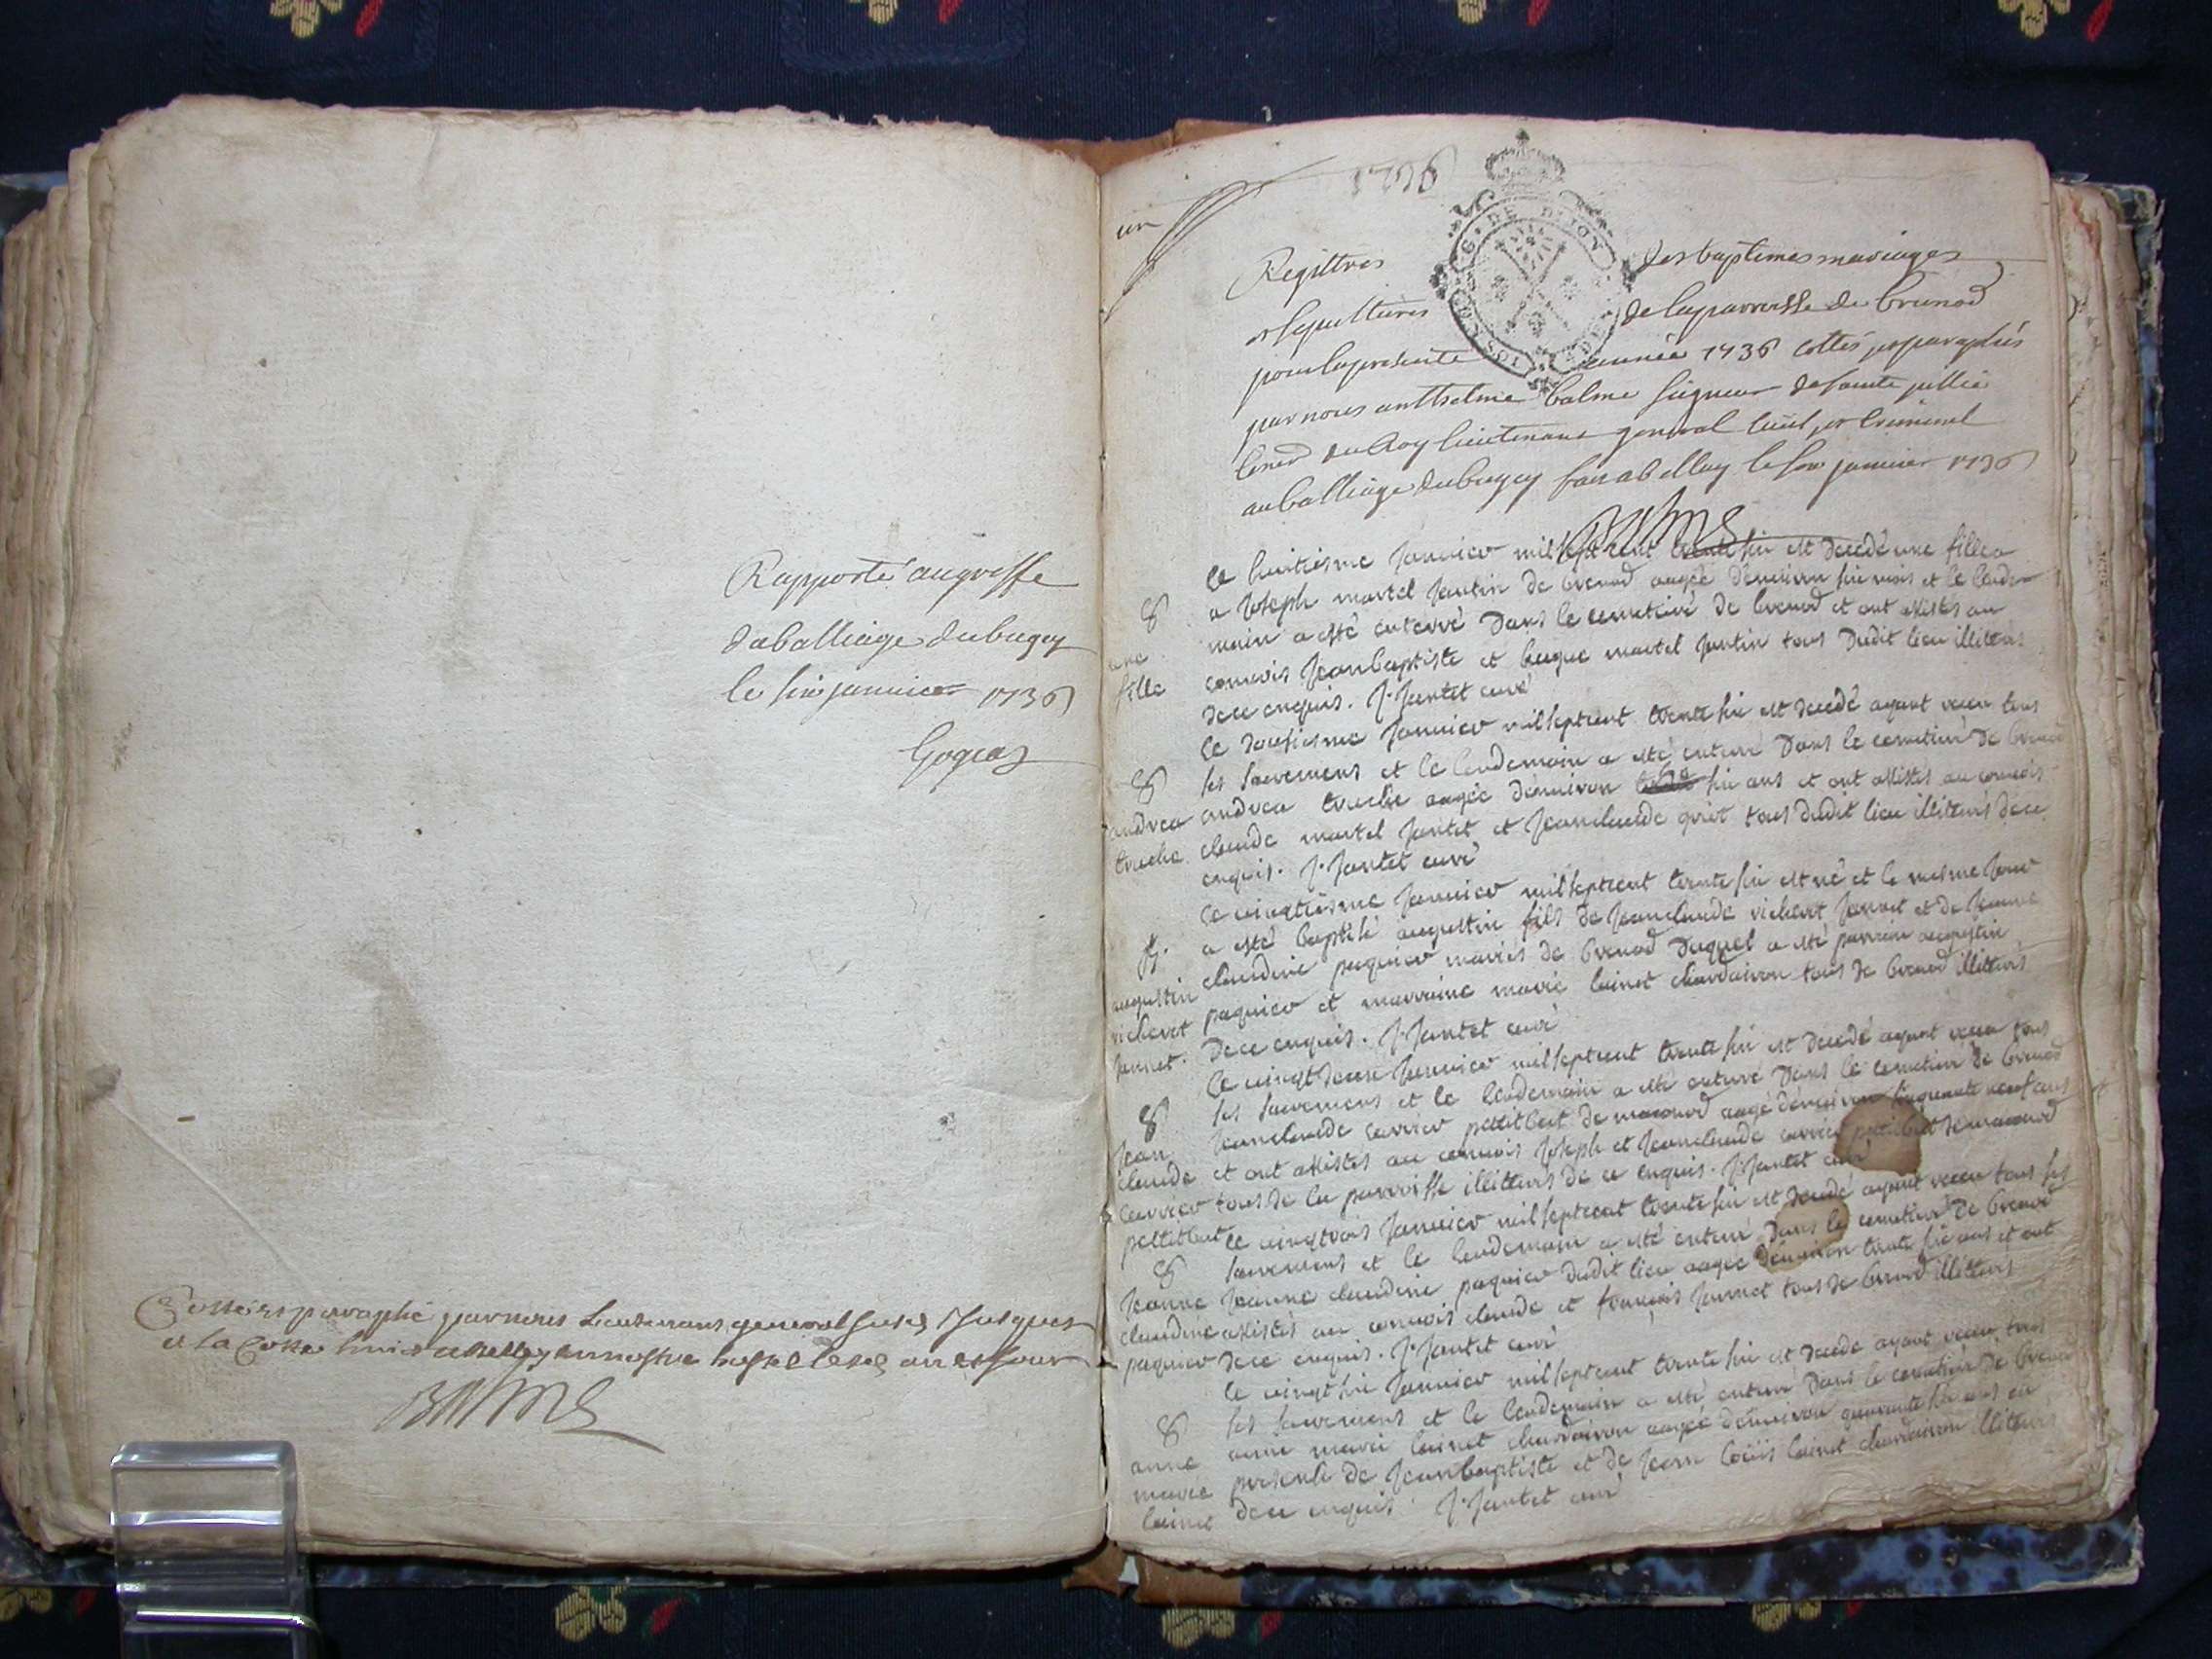 Rapporté au greffe
du balliage du bugey
le six janvier 1736
Gogeas
Cottés et paraphé par nous Lieutenant general susd Jusques
a la Cotte huit a belley en nostre hostel lesd an et Jour
BAlme
un
1736
GEN. DE DIJON
Registres des baptemes mariages
et sepultures de la parroisse de brenod
pour la presente année 1736 cottés et paraphés
par nous anthelme balme seigneur de sainte jullie
coner du Roy lieutenant general civil et criminel
au balliage du bugey fait a belley le six janvier 1736
BAlme
Le huitiesme Janvier mil sept cent trente six est decedé une fille
a Joseph martel Jantin de brenod aagée d'environ six mois et le lende
main a esté enterré dans le cemetiere de brenod et ont assistés au
une
fille
convois Jean baptiste et martel Jantin tous dudit lieu illitterés
de ce enquis. J. Jantet curé
Le dousiesme Janvier mil sept cent trente six est decedé ayant receu tous
ses sacremens et le lendemain a esté enterré dans le cemetiere de brenod
andrea
truche
andrea truche aagée d'environ six ans et ont assistés au convois
claude martel Jantet et Jean claude tous dudit lieu illitterés de ce
enquis. J. Jantet curé
Le vingtiesme Janvier mil sept cent trente six est né et le mesme Jour
a esté baptisé augustin fils de Jean claude vicherot Jannet et de Jeanne
augustin
vicherot
Jannet.
claudine paquier mariés de brenod duquel a esté parrain augustin
paquier et marraine marie chardairon tous de brenod illitterés
de ce enquis. J. Jantet curé
Le vingt deux Janvier mil sept cent trente six est decedé ayant receu tous
ses sacremens et le lendemain a esté enterré dans le cemetiere de brenod
Jean
claude
carrier
pettitbut
Jean claude carrier pettitbut de maconod aagé d'environ sinquante neuf ans
et ont assistés au convois Joseph et Jean claude carrier pettitbut de maconod
tous de la parroisse illitterés de ce enquis. J. Jantet curé
Le vingt trois Janvier mil sept cent trente six est decedé ayant receu tous ses
sacremens et le lendemain a esté enterré dans le cemetiere de brenod
Jeanne
claudine
paquier
Jeanne claudine paquier dudit lieu aagée d'environ trente six ans et ont
assistés au convois claude et francois Jannet tous de brenod illitterés
de ce enquis. J. Jantet curé
Le vingt six Janvier mil sept cent trente six est decedé ayant receu tous
ses sacremens et le lendemain a esté enterré dans le cemetiere de brenod
anne
marie
anne marie chardairon aagée d'environ quarante six ans en
presence de Jean baptiste et de Jean Loüis chardairon illitterés
de ce enquis J. Jantet curé